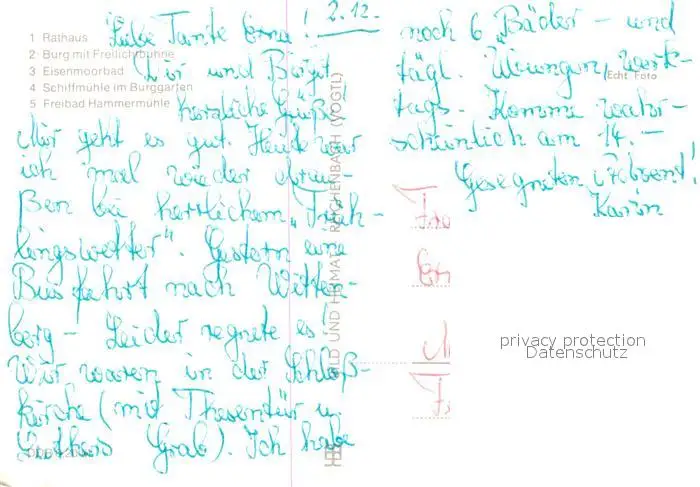 1 Rathaus
2 Burg mit Freilichtbühne
3 Eisenmoorbad
4 Schiffmühle im Burggarten
5 Freibad Hammermühle
2.12.
Liebe Tante Erna!
Dir und Birgit
herzliche Grüße
Mir geht es gut. Heut war
ich mal wieder drau-
ßen bei herrlichem „Früh-
lingswetter“. Gestern eine
Busfahrt nach Witten-
berg – Leider regnete es!
Wir waren in der Schloß-
kirche (mit Thesentür u.
Luthers Grab). Ich habe
noch 6 „Bäder“ – und
tägl. Übungen, werk-
tags. Komme wahr-
scheinlich am 14. –
Gesegneten Advent!
Karin
Echt Foto
BILD UND HEIMAT REICHENBACH (VOGTL)
privacy protection
Datenschutz